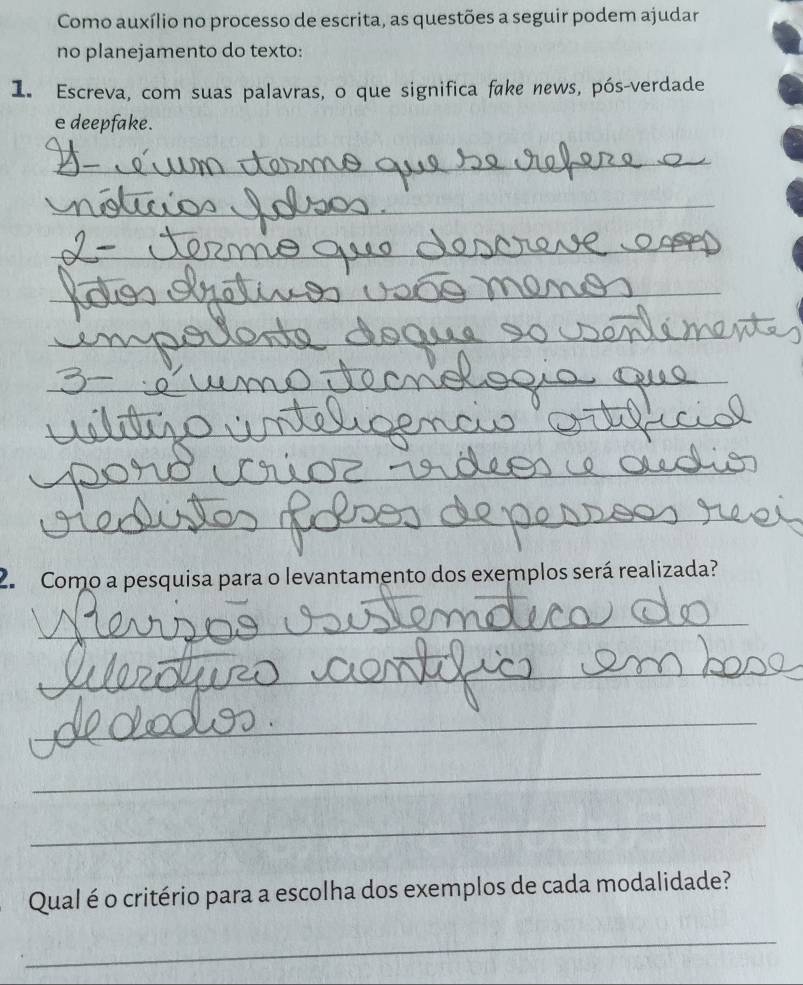 Como auxílio no processo de escrita, as questões a seguir podem ajudar
no planejamento do texto:
1. Escreva, com suas palavras, o que significa fake news, pós-verdade
e deepfake.
1- é um termo que se refere a
notícias falsas.
2- Termo que descreve
fatos objetivos são menos
importante do que so sentimentos
3- é uma tecnologia que
utiliza inteligencia artificial
para criar videos e audios
realistas falsos de pessoas reais
2. Como a pesquisa para o levantamento dos exemplos será realizada?
Revisão sistematica da
literatura cientifica em base
de dados.
Qual é o critério para a escolha dos exemplos de cada modalidade?